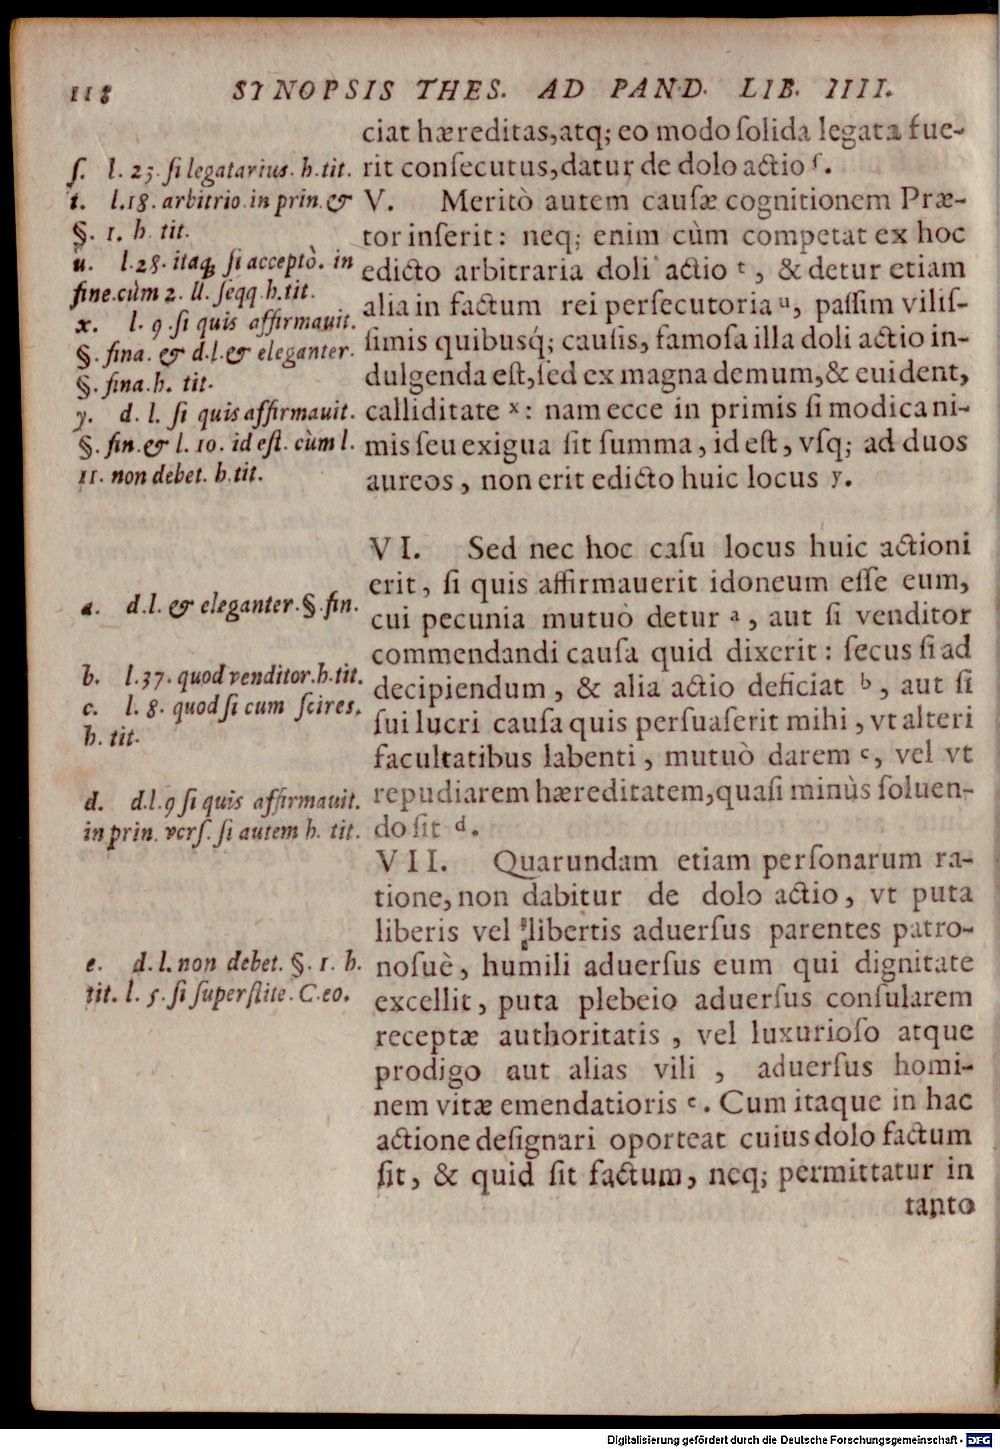 118 SYNOPSIS THES. AD PAND. LIB. IIII.
ciat hæreditas, atq; eo modo ſolida legata fue-
rit conſecutus, datur de dolo actio ſ.
V. Meritò autem cauſæ cognitionem Præ-
tor inſerit: neq; enim cùm competat ex hoc
edicto arbitraria doli actio t, & detur etiam
alia in factum rei perſecutoria u, paſſim viliſ-
ſimis quibusq́; cauſis, famoſa illa doli actio in-
dulgenda eſt, ſed ex magna demum, & euident,
calliditate x: nam ecce in primis ſi modica ni-
mis ſeu exigua ſit ſumma, id eſt, vſq; ad duos
aureos, non erit edicto huic locus y.
VI. Sed nec hoc caſu locus huic actioni
erit, ſi quis affirmauerit idoneum eſſe eum,
cui pecunia mutuò detur a, aut ſi venditor
commendandi cauſa quid dixerit: ſecus ſi ad
decipiendum, & alia actio deficiat b, aut ſi
ſui lucri cauſa quis perſuaſerit mihi, vt alteri
facultatibus labenti, mutuò darem c, vel vt
repudiarem hæreditatem, quaſi minùs ſoluen-
do ſit d.
VII. Quarundam etiam perſonarum ra-
tione, non dabitur de dolo actio, vt puta
liberis vel libertis aduerſus parentes patro-
noſuè, humili aduerſus eum qui dignitate
excellit, puta plebeio aduerſus conſularem
receptæ authoritatis, vel luxurioſo atque
prodigo aut alias vili, aduerſus homi-
nem vitæ emendatioris e. Cum itaque in hac
actione deſignari oporteat cuius dolo factum
ſit, & quid ſit factum, neq; permittatur in
tanto
ſ. l. 23. ſi legatarius. h. tit.
t. l. 18. arbitrio. in prin. &
§. 1. h. tit.
u. l. 28. itaq; ſi acceptò. in
fine. cùm 2. ll. ſeqq. h. tit.
x. l. 9. ſi quis affirmauit.
§. fina. & d. l. & eleganter.
§. fina. h. tit.
y. d. l. ſi quis affirmauit.
§. fin. & l. 10. id eſt. cùm l.
11. non debet. h. tit.
a. d. l. & eleganter. §. fin.
b. l. 37. quod venditor. h. tit.
c. l. 8. quod ſi cum ſcires.
h. tit.
d. d. l. 9 ſi quis affirmauit.
in prin. verſ. ſi autem h. tit.
e. d. l. non debet. §. 1. h.
tit. l. 5. ſi ſuperſtite. C. eo.
Digitalisierung gefördert durch die Deutsche Forschungsgemeinschaft - DFG